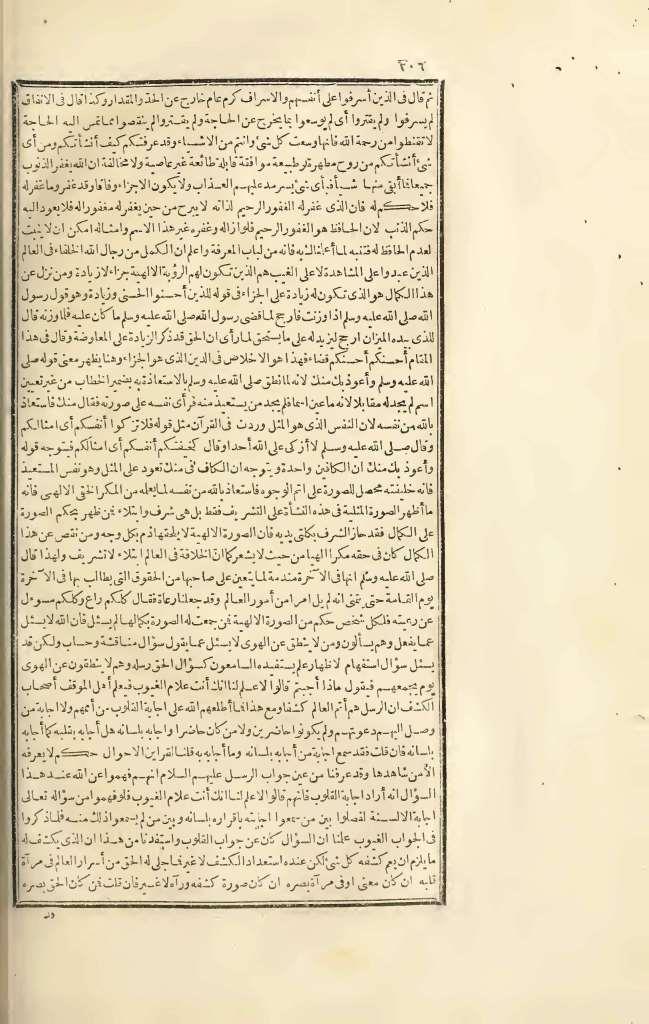 ٣٠٦
ثم قال فى الذين أسرفوا على أنفسهم والاسراف كرم عام خارج عن الحد والمقدار وكذا قال فى الانفاق
لم يسرفوا ولم يقتروا أى لم يوسعوا بما يخرج عن الحاجة ولم يقتروا لم ينقصوا مما تمس اليه الحاجة
لا تقنطوا من رحمة الله فانها وسعت كل شئ وأنتم من الاشياء وقد عرفتكم كيف أنشأتكم ومن أى
شئ أنشأتكم من روح مطهرة وطبيعة موافقة قابلة طائعة غير عاصية ولا مخالفة ان الله يغفر الذنوب
جميعا فما أبقى منها شيأ فبأى شئ يسرمد عليهم العذاب ولا يكون الا جزاء وفاقا وقد غفر وما غفر له
فلا حكم له فان الذى غفر له الغفور الرحيم لذاته لا يبرح من حين يغفر له مغفورا له فلا يعود اليه
حكم الذنب لان الحافظ هو الغفور الرحيم فلو ازاله وغفره غير هذا الاسم وامثاله امكن ان لا يثبت
لعدم الحافظ له فتنبه لما أعلمتك به فانه من لباب المعرفة واعلم ان الكمل من رجال الله الخلفاء فى العالم
الذين عبدوا على المشاهدة لا على الغيب هم الذين تكون لهم الرؤية الالهية جزاء لا زيادة ومن نزل عن
هذا الكمال هو الذى تكون له زيادة على الجزاء فى قوله للذين أحسنوا الحسنى وزيادة وهو قول رسول
الله صلى الله عليه وسلم اذا وزنت فارجح لما قضى رسول الله صلى الله عليه وسلم ما كان عليه فلما وزنه قال
للذى بيده الميزان ارجح ليزيد له على ما يستحق لما رأى ان الحق قد ذكر الزيادة على المعاوضة وقال فى هذا
المقام أحسنكم أحسنكم قضاء فهذا هو الاخلاص فى الدين الذى هو الجزاء وهنا يظهر معنى قوله صلى
الله عليه وسلم وأعوذ بك منك لانه لما نطق صلى الله عليه وسلم بالاستعاذة به بضمير الخطاب من غير تعيين
اسم لم يجد له مقابلا لانه ما عين اسما فلم يجد من يستعيذ منه فرأى نفسه على صورته فقال منك فاستعاذ
بالله من نفسه لان النفس الذى هو المثل وردت فى القرآن مثل قوله فلا تزكوا أنفسكم أى امثالكم
وقال صلى الله عليه وسلم لا أزكى على الله أحدا وقال كخيفتكم أنفسكم أى امثالكم فتوجه قوله
وأعوذ بك منك ان الكافين واحدة ويتوجه ان الكاف فى منك تعود على المثل وهو نفس المستعيذ
فانه خليفته محصل للصورة على اتم الوجوه فاستعاذ بالله من نفسه لما يعلمه من المكر الخفى الالهى فانه
ما أظهر الصورة المثلية فى هذه النشأة على التشريف فقط بل هى شرف وابتلاء فمن ظهر بحكم الصورة
على الكمال فقد حاز الشرف بكلتى يديه فان الصورة الالهية لا يلحقها ذم بكل وجه ومن نقص عن هذا
الكمال كان فى حقه مكرا الهيا من حيث لا يشعر كما ان الخلافة فى العالم ابتلاء لا تشريف ولهذا قال
صلى الله عليه وسلم انها فى الآخرة مندمة لما يتعين على صاحبها من الحقوق التى يطالب بها فى الآخرة
يوم القيامة حتى يتمنى انه لم يل امرا من أمور العالم وقد جعلنا رعاة فقال كلكم راع وكلكم مسؤل
عن رعيته فلكل شخص حكم من الصورة الالهية فمن جمعت له الصورة بكمالها لم يسئل فان الله لا يسئل
عما يفعل وهم يسألون ومن لا ينطق عن الهوى لا يسئل عما يقول سؤال مناقشة وحساب ولكن قد
يسئل سؤال استفهام لاظهار علم يستفيده السامعون كسؤال الحق رسله وهم لا ينطقون عن الهوى
يوم يجمعهم فيقول ماذا أجبتم قالوا لا علم لنا انك أنت علام الغيوب فيعلم أهل الموقف أصحاب
الكشف ان الرسل هم أتم العالم كشفا ومع هذا فما أطلعهم الله على اجابة القلوب من أممهم ولا اجابة من
وصل اليهم دعوتهم ولم يكونوا حاضرين ولا من كان حاضرا واجابه بلسانه هل أجابه بقلبه كما أجابه
بلسانه فان قلت فقد سمع اجابة من أجابه بلسانه وما أجابه به قلنا لقرائن الاحوال حكم لا يعرفه
الا من شاهدها وقد عرفنا من عين جواب الرسل عليهم السلام انهم فهموا عن الله عند هذا
السؤال انه أراد اجابة القلوب فانهم قالوا لا علم لنا انك أنت علام الغيوب فلو فهموا من سؤاله تعالى
اجابة الالسنة لفصلوا بين من سمعوا اجابته باقراره بلسانه وبين من لم يسمعوا ذلك منه فلما ذكروا
فى الجواب الغيوب علمنا ان السؤال كان عن جواب القلوب واستفدنا من هذا ان الذى يكشف له
ما يلزم ان يعم كشفه كل شئ لكن عنده استعداد الكشف لا غير فما جلى له الحق من أسرار العالم فى مرآة
قلبه ان كان معنى او فى مرآة بصره ان كان صورة كشفه ورآه لا غير فان قلت فمن كان الحق بصره